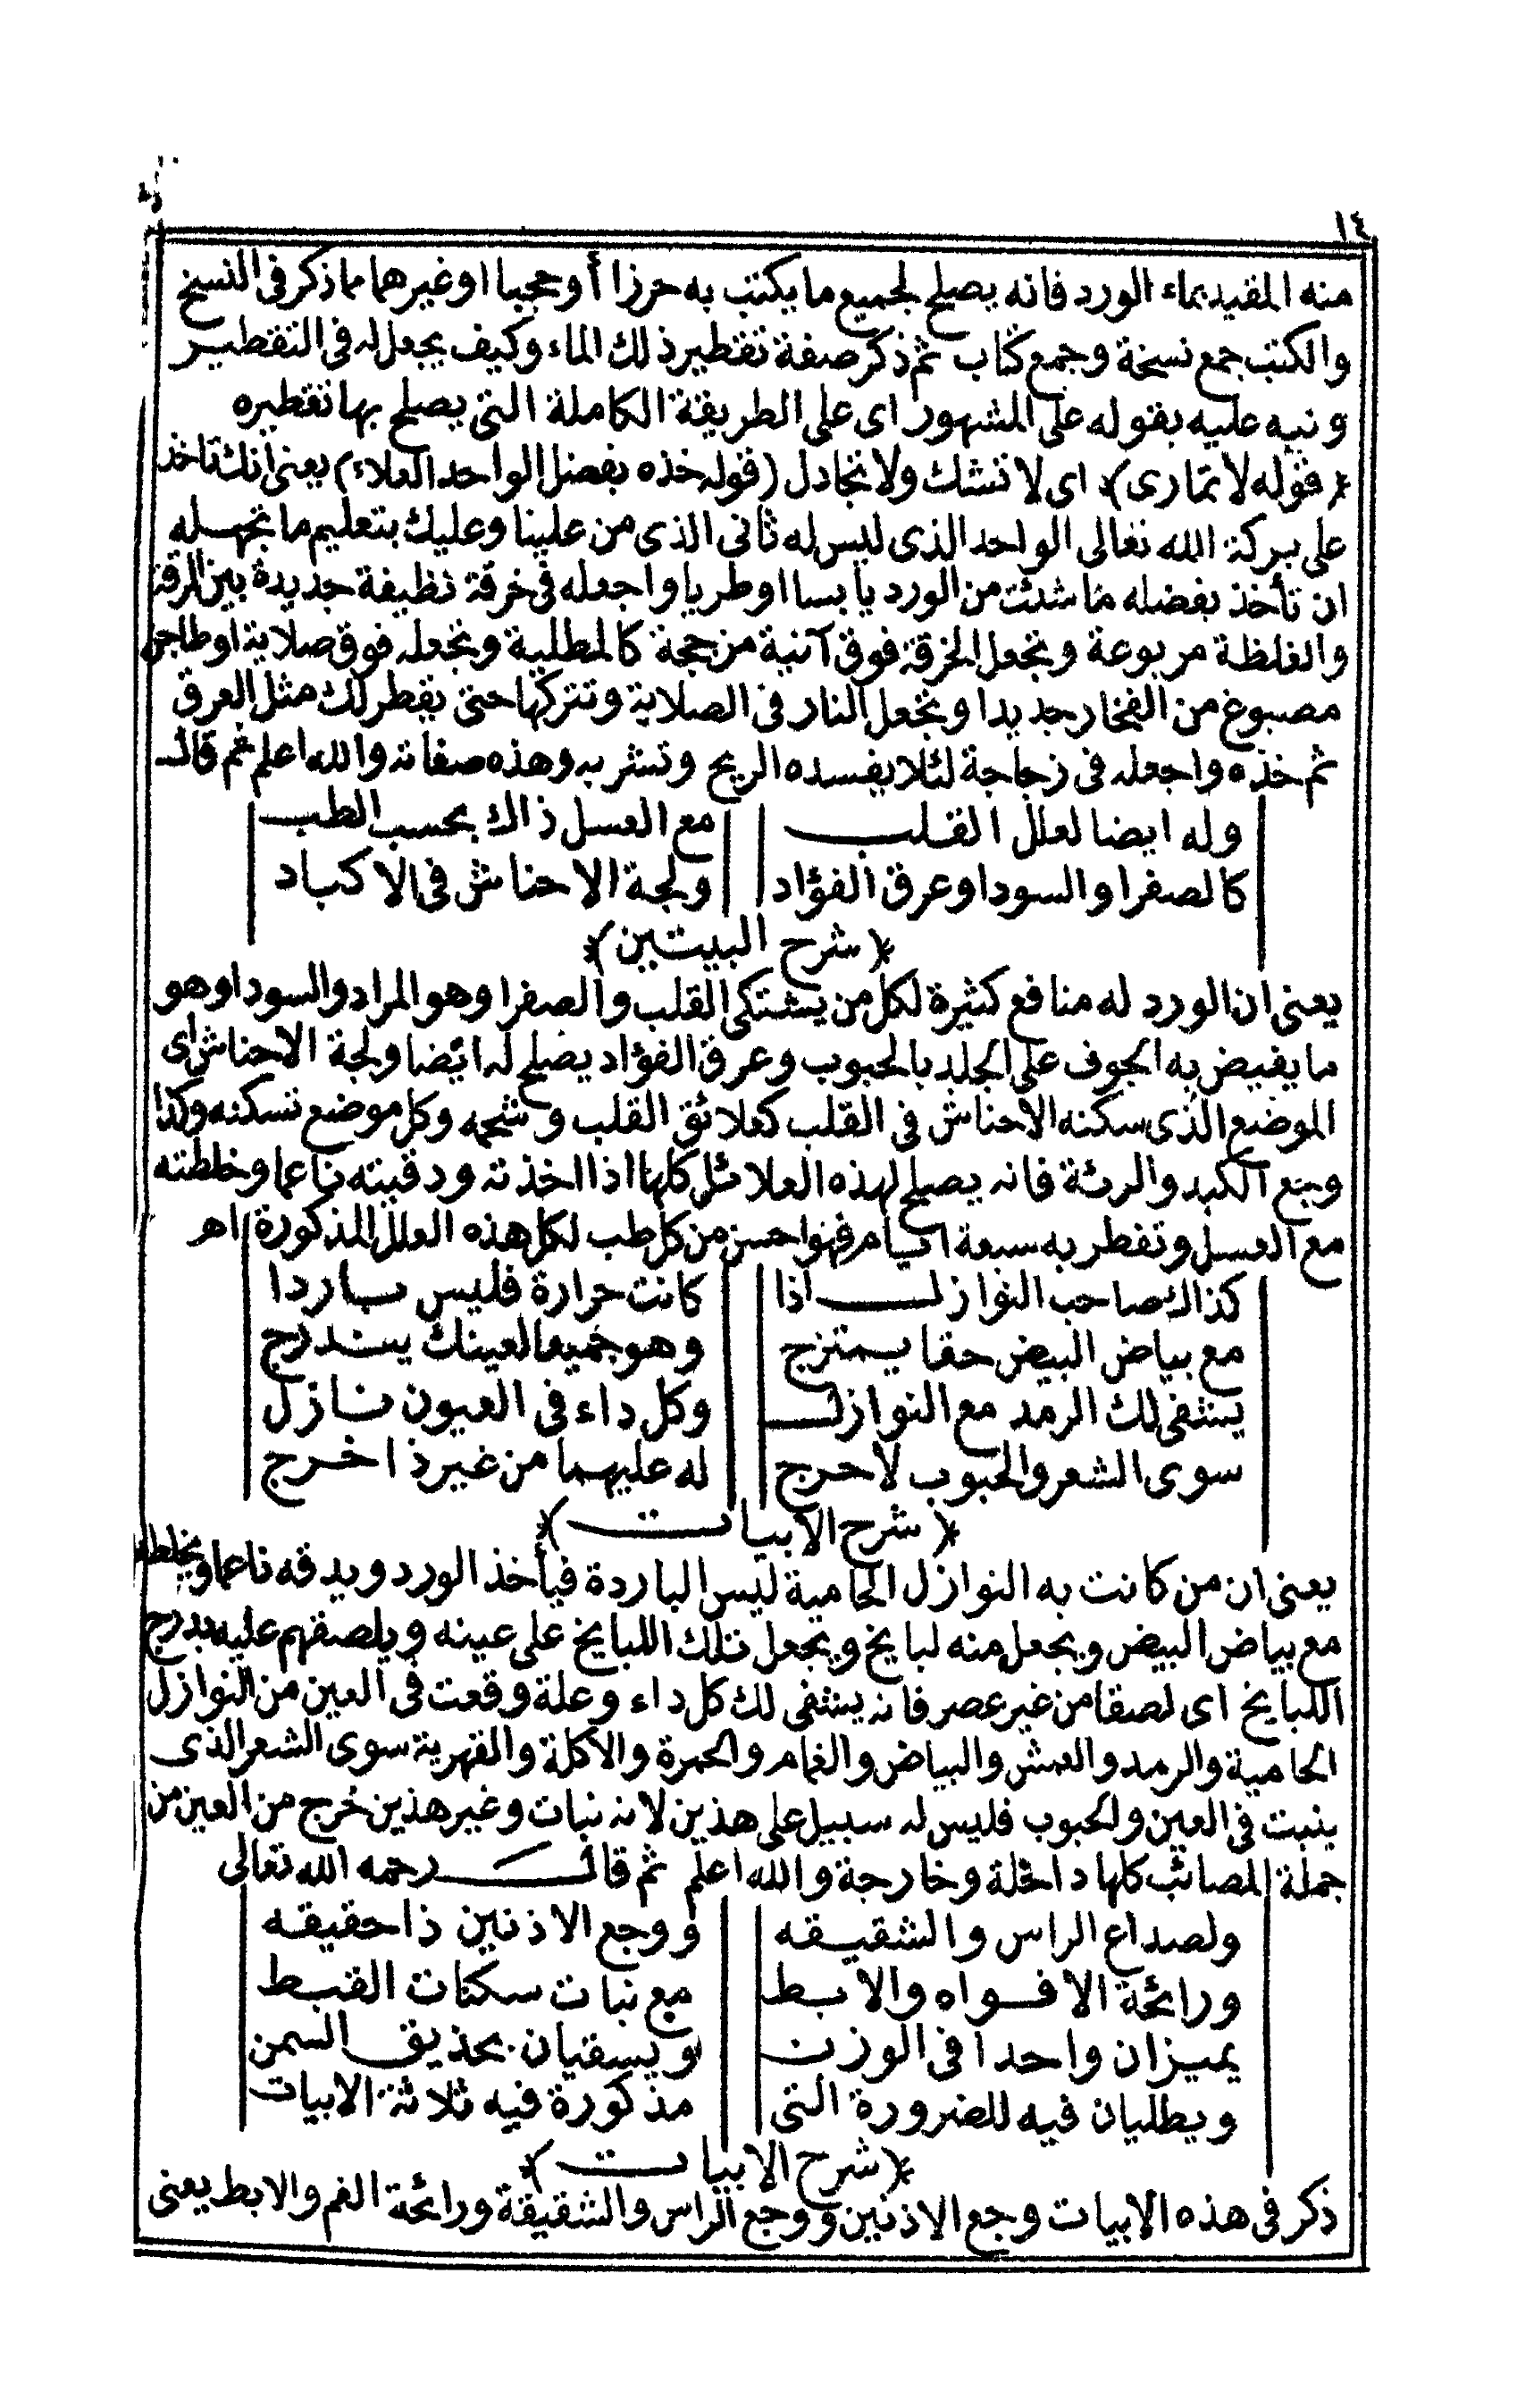 ١٤
منه المقيد بماء الورد فانه يصلح لجميع ما يكتب به حرزا أو حجبا او غيرهما مما ذكر فى النسخ
والكتب جمع نسخة وجمع كتاب ثم ذكر صفة تقطير ذلك الماء وكيف يجعل له فى التقطيـر
ونبه عليه بقوله على المشهور اى على الطريقة الكاملة التى يصلح بها تقطيره
﴿قوله لا تمارى﴾ اى لا تشك ولا تجادل (قوله خذه بفضل الواحد العلاء) يعنى انك تاخذ
على بركة الله تعالى الواحد الذى ليس له ثانى الذى من علينا وعليك بتعليم ما تجهـله
ان تأخذ بفضله ما شئت من الورد يابسا او طريا واجعله فى خرقة نظيفة جديدة بين الرقة
والغلظة مربوعة وتجعل الخرقة فوق آنية مزججة كالمطلية وتجعله فوق صلاية او طاجن
مصبوغ من الفخار جديدا وتجعل النار فى الصلاية وتتركها حتى يقطر لك مثل العرق
ثم خذه واجعله فى زجاجة لئلا يفسده الريح وتشربه وهذه صفاته والله اعلم ثم قال
وله ايضا لعلل القـلب مع العسل ذاك بحسب الطب
كالصفرا والسودا وعرق الفؤاد ولجة الاحناش فى الاكباد
﴿شرح البيتين﴾
يعنى ان الورد له منافع كثيرة لكل من يشتكى القلب والصفرا وهو المراد والسودا وهو
ما يفيض به الجوف على الجلد بالحبوب وعرق الفؤاد يصلح له ايضا ولجة الاحناش اى
الموضع الذى سكنه الاحناش فى القلب كعلائق القلب وشحمه وكل موضع تسكنه وكذا
وجع الكبد والرئة فانه يصلح لهذه العلائل كلها اذا اخذته ودقيته ناعما وخلطته
مع العسل وتفطر به سبعة ايـام فهو احسن من كل طب لكل هذه العلل المذكورة اهـ
كذاك صاحب النوازل اذا كانت حرارة فليس بـاردا
مع بياض البيض حقا يـمتزج وهو جميعا لعينك ينـدرج
ينتفى لك الرمد مع النوازل وكل داء فى العيون نـازل
سوى الشعر والحبوب لا حرج له عليهـما من غير ذا خـرج
﴿شرح الابيات﴾
يعنى ان من كانت به النوازل الحامية ليس الباردة فيأخذ الورد ويدقه ناعما ويخلطه
مع بياض البيض ويجعل منه لبايخ ويجعل تلك اللبايخ على عينه ويلصقهم عليه بدرج
اللبايخ اى لصقا من غير عصر فانه ينتفى لك كل داء وعلة وقعت فى العين من النوازل
الحامية والرمد والعمش والبياض والغمام والحمرة والاكلة والقهرية سوى الشعر الذى
ينبت فى العين والحبوب فليس له سبيل على هذين لانه نبات وغير هذين خرج من العين من
جملة المصائب كلها داخلة وخارجة والله اعلم ثم قال رحمه الله تعالى
ولصداع الراس والشقيـقه ووجع الاذنين ذا حقيقـه
ورائحة الافـواه والابـط مع نبات سكتات القبـط
يميـزان واحدا فى الوزن ويسقيان بحذيق السمن
ويطليان فيه للضرورة التى مذكورة فيه ثلاثة الابيات
﴿شرح الابيات﴾
ذكر فى هذه الابيات وجع الاذنين ووجع الراس والشقيقة ورائحة الفم والابط يعنى